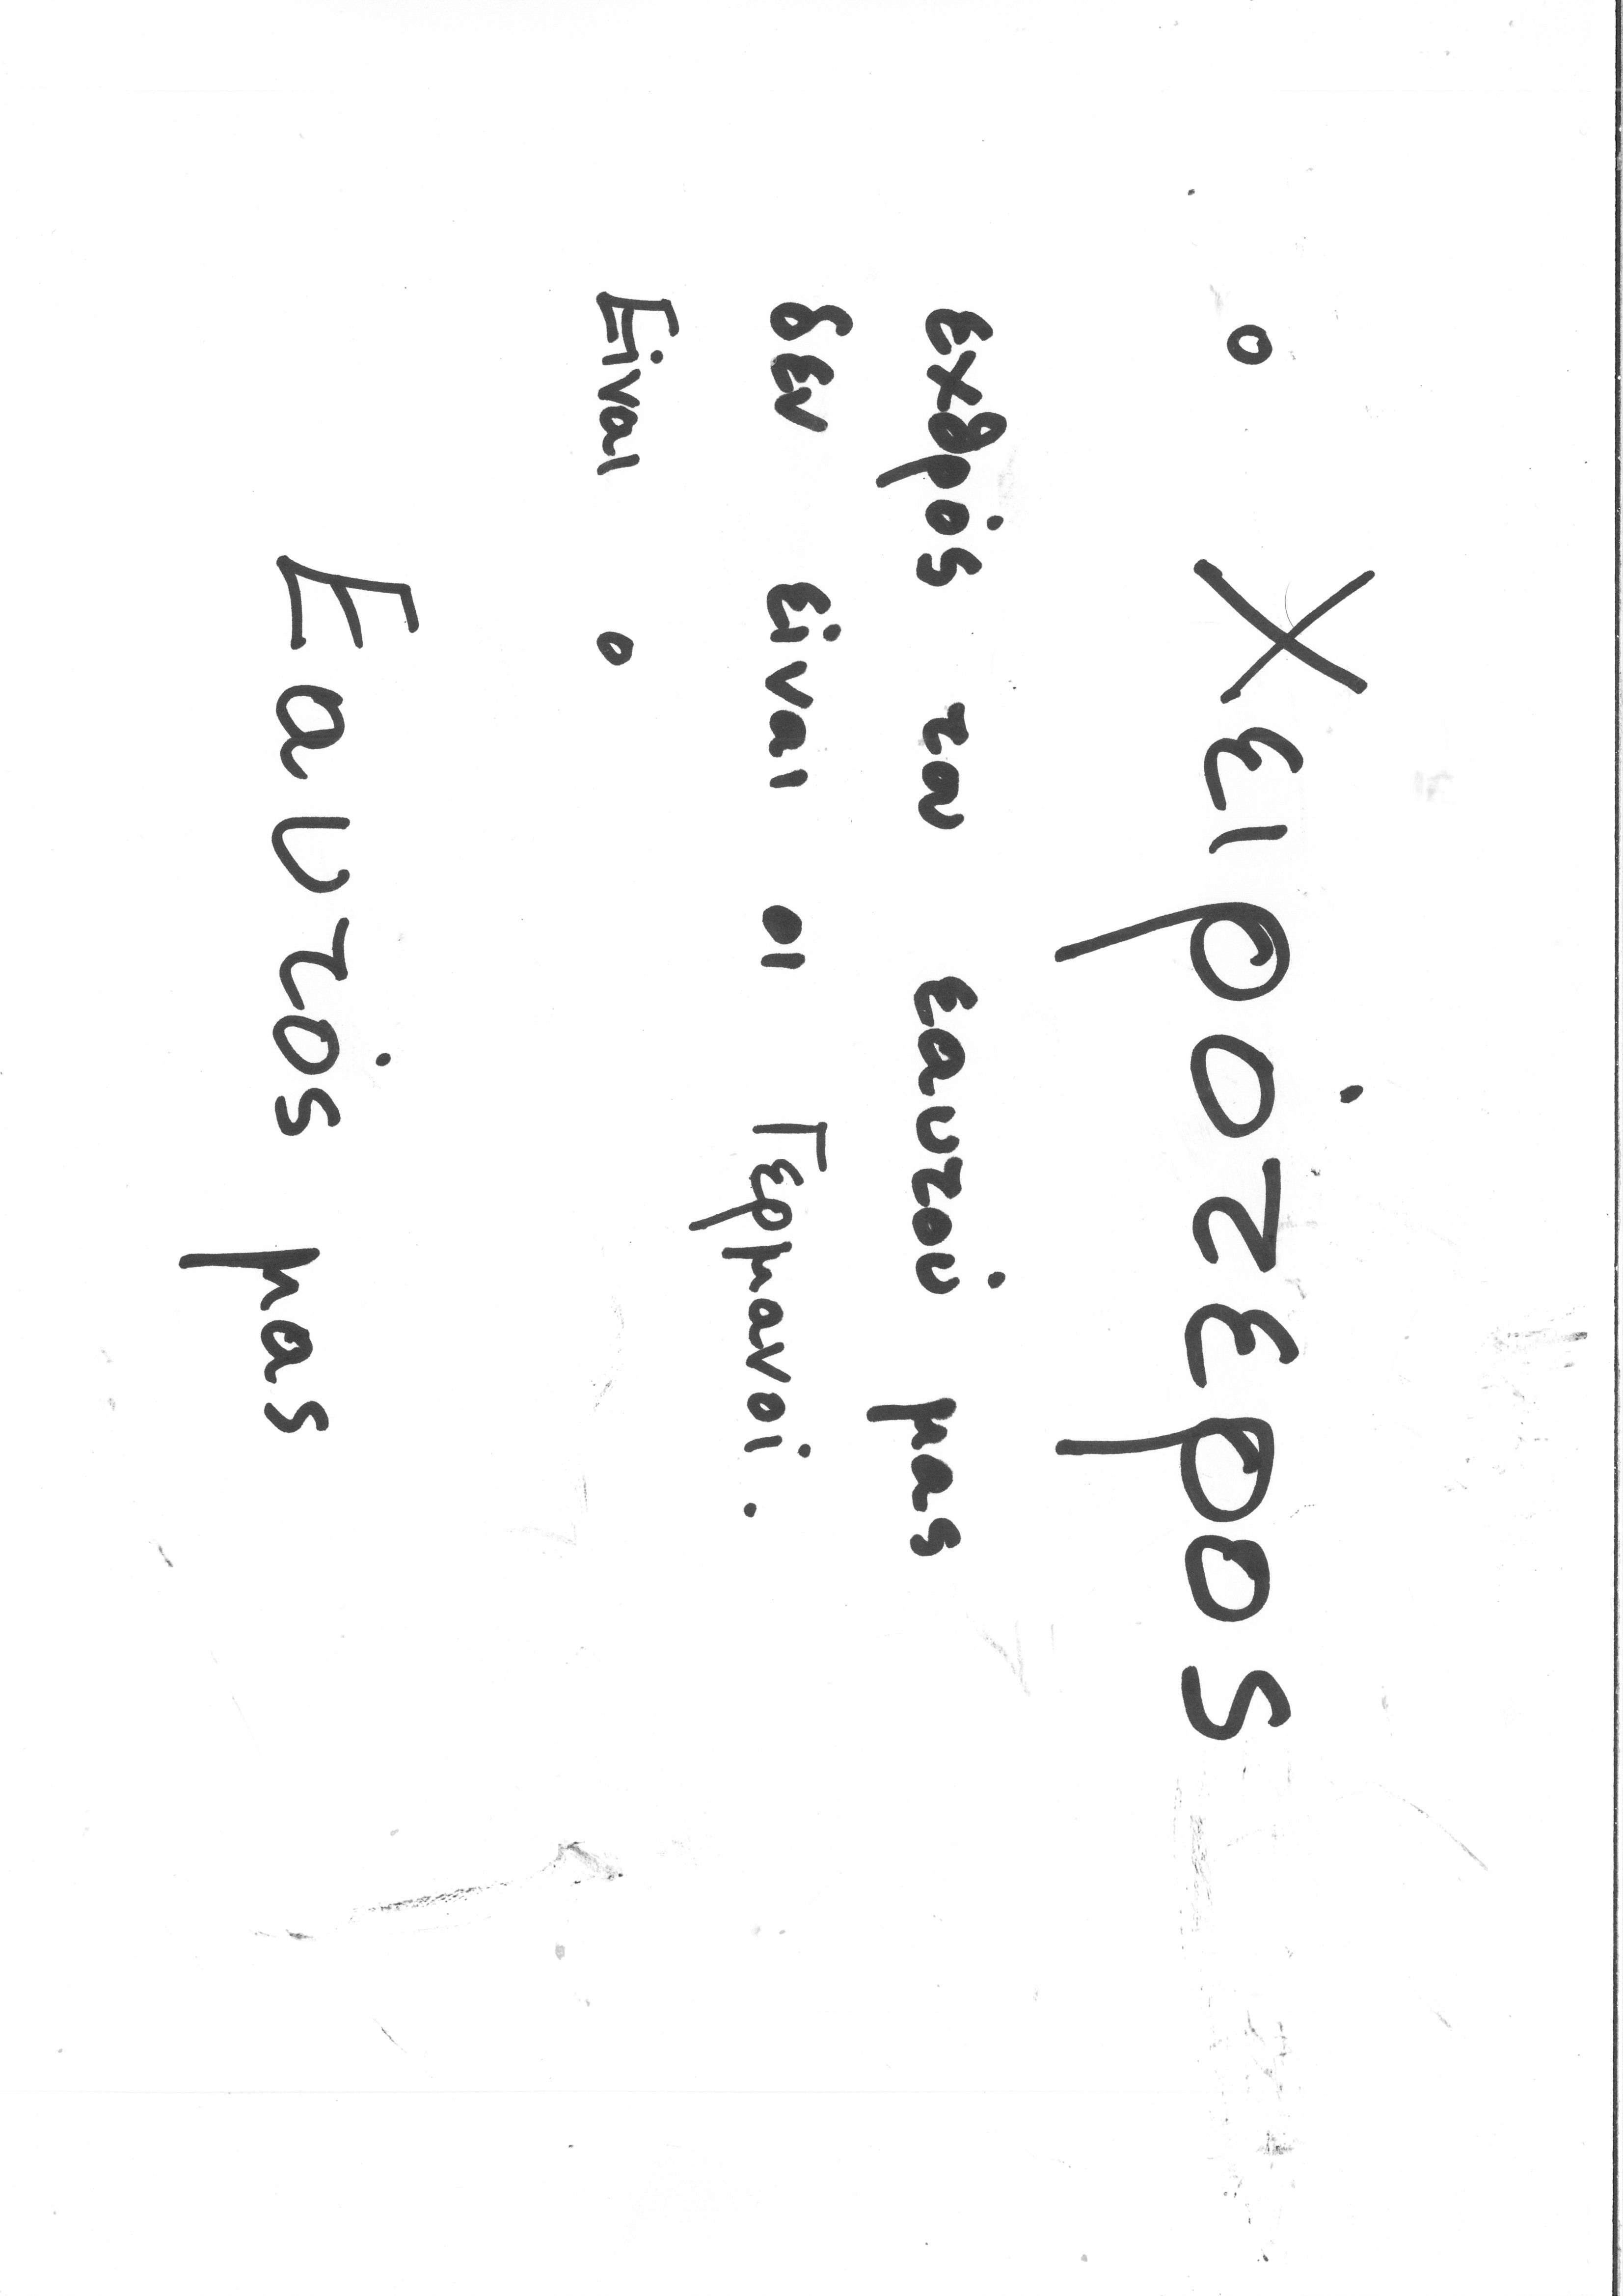 ο Χειρότερος
εχθρός του εαυτού μας
δεν είναι οι Γερμανοί.
Είναι ο
Εαυτός μας